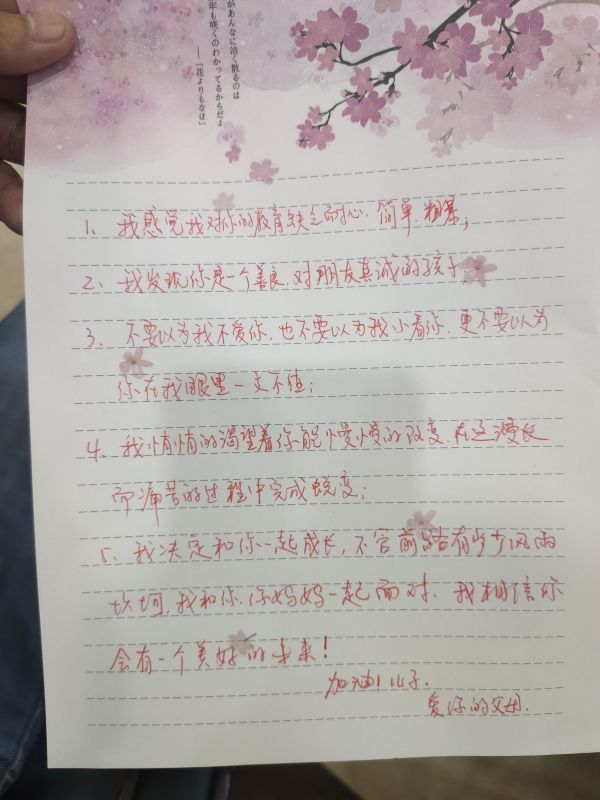 があんなに潔く散るのは
年も咲くのわかってるからだよ
──「花よりもなほ」
1、我感觉我对你的教育缺乏耐心 简单 粗暴；
2、我发现你是一个善良.对朋友真诚的孩子
3、不要以为我不爱你.也不要以为我小看你.更不要以为
你在我眼里一文不值；
4、我悄悄的渴望着你能慢慢的改变.在这漫长
而痛苦的过程中完成蜕变；
5、我决定和你一起成长,不管前路有多少风雨
坎坷,我和你.你妈妈一起面对、我相信你
会有一个美好的未来!
加油!儿子.
爱你的父母.